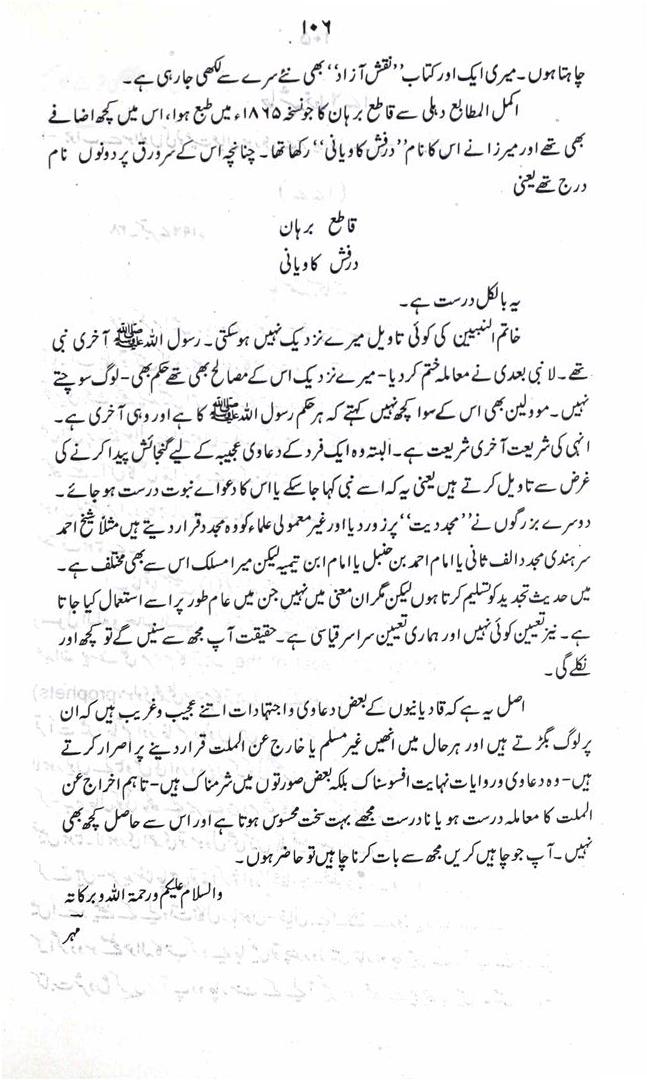 ۱۰۶
چاہتا ہوں۔ میری ایک اور کتاب ’’نقش آزاد‘‘ بھی نئے سرے سے لکھی جا رہی ہے۔
اکمل المطابع دہلی سے قاطع برہان کا جو نسخہ ۱۸۶۵ء میں طبع ہوا، اس میں کچھ اضافے
بھی تھے اور میرزا نے اس کا نام ’’درفش کاویانی‘‘ رکھا تھا۔ چنانچہ اس کے سرورق پر دونوں نام
درج تھے یعنی
قاطع برہان
درفش کاویانی
یہ بالکل درست ہے۔
خاتم النبیین کی کوئی تاویل میرے نزدیک نہیں ہو سکتی۔ رسول اللہ ﷺ آخری نبی
تھے۔ لا نبی بعدی نے معاملہ ختم کر دیا- میرے نزدیک اس کے مصالح بھی تھے حکم بھی- لوگ سوچتے
نہیں۔ موولین بھی اس کے سوا کچھ نہیں کہتے کہ ہر حکم رسول اللہ ﷺ کا ہے اور وہی آخری ہے۔
انہی کی شریعت آخری شریعت ہے۔ البتہ وہ ایک فرد کے دعاوی عجیبہ کے لیے گنجائش پیدا کرنے کی
غرض سے تاویل کرتے ہیں یعنی یہ کہ اسے نبی کہا جا سکے یا اس کا دعواے نبوت درست ہو جائے۔
دوسرے بزرگوں نے ’’مجددیت‘‘ پر زور دیا اور غیر معمولی علماء کو وہ مجدد قرار دیتے ہیں مثلاً شیخ احمد
سرہندی مجدد الف ثانی یا امام احمد بن حنبل یا امام ابن تیمیہ لیکن میرا مسلک اس سے بھی مختلف ہے۔
میں حدیث تجدید کو تسلیم کرتا ہوں لیکن مگر ان معنی میں نہیں جن میں عام طور پر اسے استعمال کیا جاتا
ہے۔ نیز تعیین کوئی نہیں اور ہماری تعیین سراسر قیاسی ہے۔ حقیقت آپ مجھ سے سنیں گے تو کچھ اور
نکلے گی۔
اصل یہ ہے کہ قادیانیوں کے بعض دعاوی و اجتہادات اتنے عجیب و غریب ہیں کہ ان
پر لوگ بگڑتے ہیں اور ہر حال میں انھیں غیر مسلم یا خارج عن الملت قرار دینے پر اصرار کرتے
ہیں- وہ دعاوی و روایات نہایت افسوسناک بلکہ بعض صورتوں میں شرمناک ہیں- تاہم اخراج عن
الملت کا معاملہ درست ہو یا نادرست مجھے بہت سخت محسوس ہوتا ہے اور اس سے حاصل کچھ بھی
نہیں۔ آپ جو چاہیں کریں مجھ سے بات کرنا چاہیں تو حاضر ہوں۔
والسلام علیکم ورحمۃ اللہ وبرکاتہ
مہر